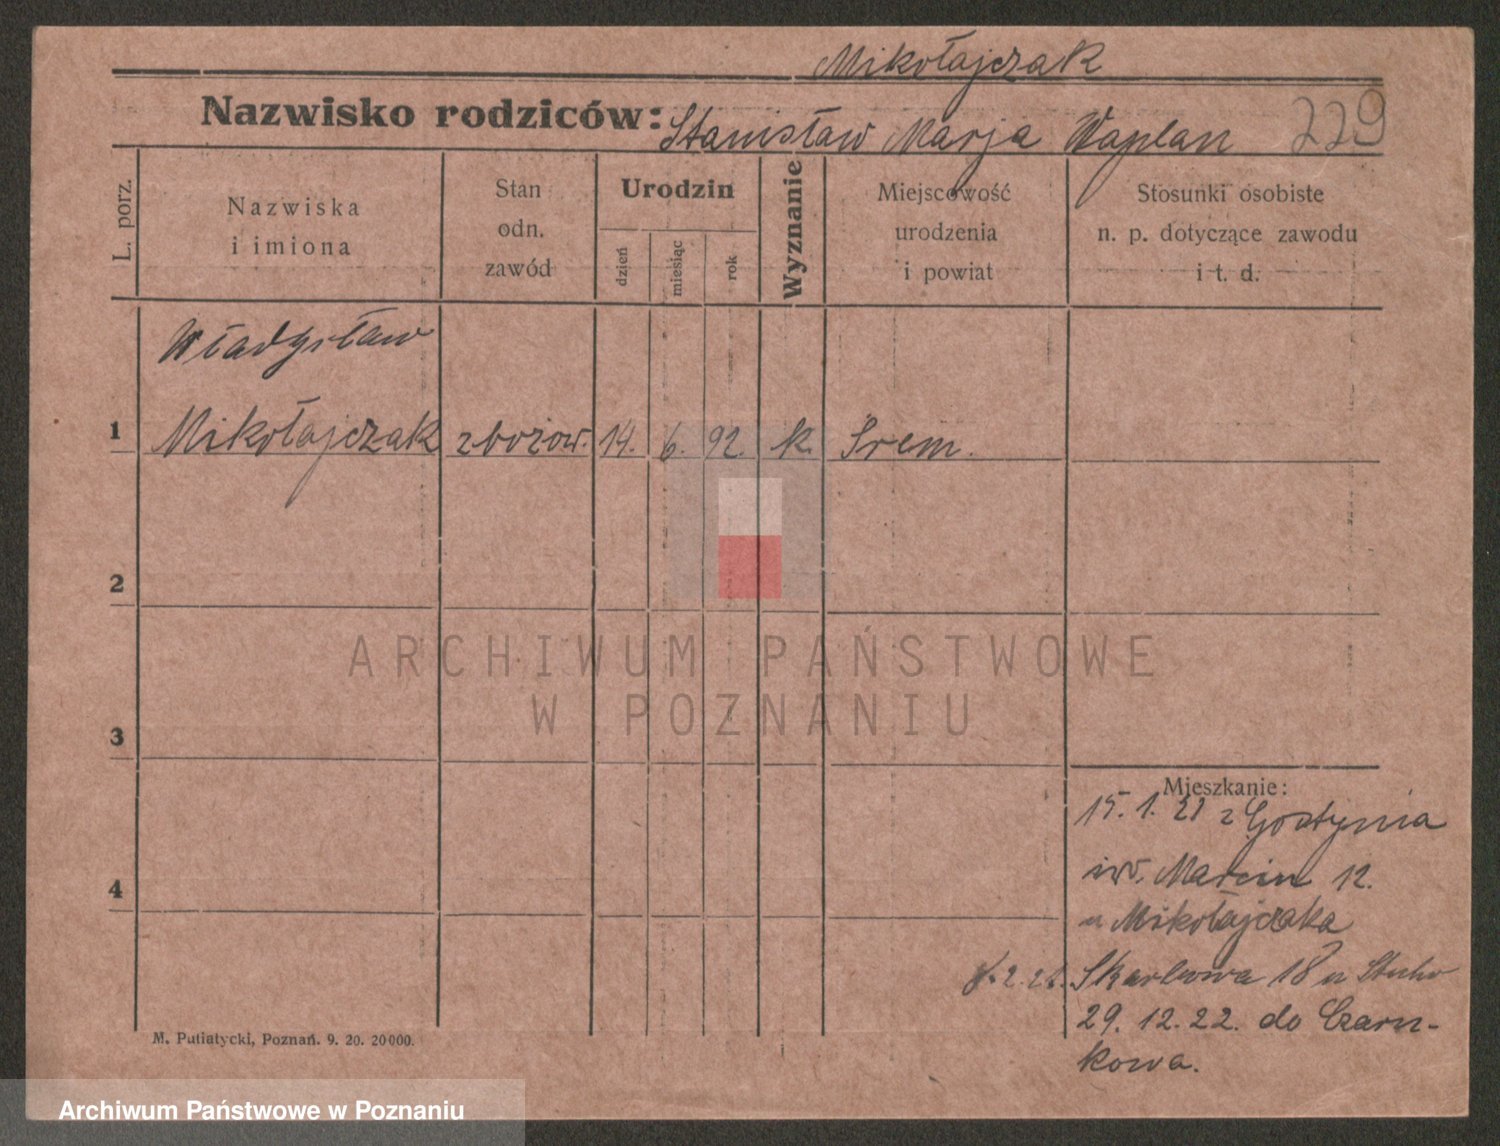 Mikołajczak
Nazwisko rodziców: Stanisław Marja Waplan 229
L. porz.
Nazwiska
i imiona
Stan
odn.
zawód
Urodzin
dzień
miesiąc
rok
Wyznanie
Miejscowość
urodzenia
i powiat
Stosunki osobiste
n. p. dotyczące zawodu
i t. d.
Władysław
1 Mikołajczak zbożow. 14. 6. 92. k. Śrem.
2
3
4
ARCHIWUM PAŃSTWOWE
W POZNANIU
Mieszkanie:
15. 1. 21 z Gostynia
św. Marcin 12.
u Mikołajczaka
2. 21. Skarbowa 18 u
29. 12. 22. do Czarn-
kowa.
M. Putiatycki, Poznań. 9. 20. 20000.
Archiwum Państwowe w Poznaniu